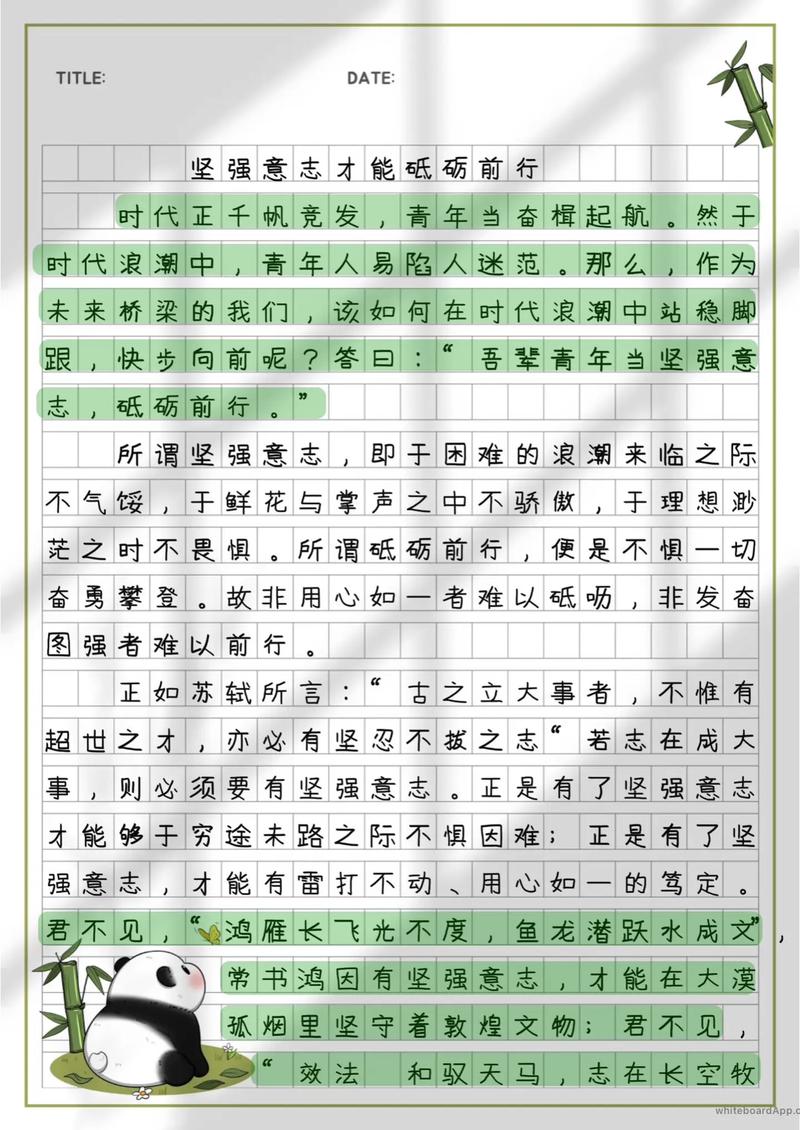 TITLE: DATE:
坚强意志才能砥砺前行
时代正千帆竞发，青年当奋楫起航。然于
时代浪潮中，青年人易陷人迷范。那么，作为
未来桥梁的我们，该如何在时代浪潮中站稳脚
跟，快步向前呢？答曰：“吾辈青年当坚强意
志，砥砺前行。”
所谓坚强意志，即于困难的浪潮来临之际
不气馁，于鲜花与掌声之中不骄傲，于理想渺
茫之时不畏惧。所谓砥砺前行，便是不惧一切
奋勇攀登。故非用心如一者难以砥呖，非发奋
图强者难以前行。
正如苏轼所言：“古之立大事者，不惟有
超世之才，亦必有坚忍不拔之志“若志在成大
事，则必须要有坚强意志。正是有了坚强意志
才能够于穷途未路之际不惧因难；正是有了坚
强意志，才能有雷打不动、用心如一的笃定。
君不见，“鸿雁长飞光不度，鱼龙潜跃水成文”，
常书鸿因有坚强意志，才能在大漠
孤烟里坚守着敦煌文物；君不见，
“效法 和驭天马，志在长空牧
whiteboardApp.c